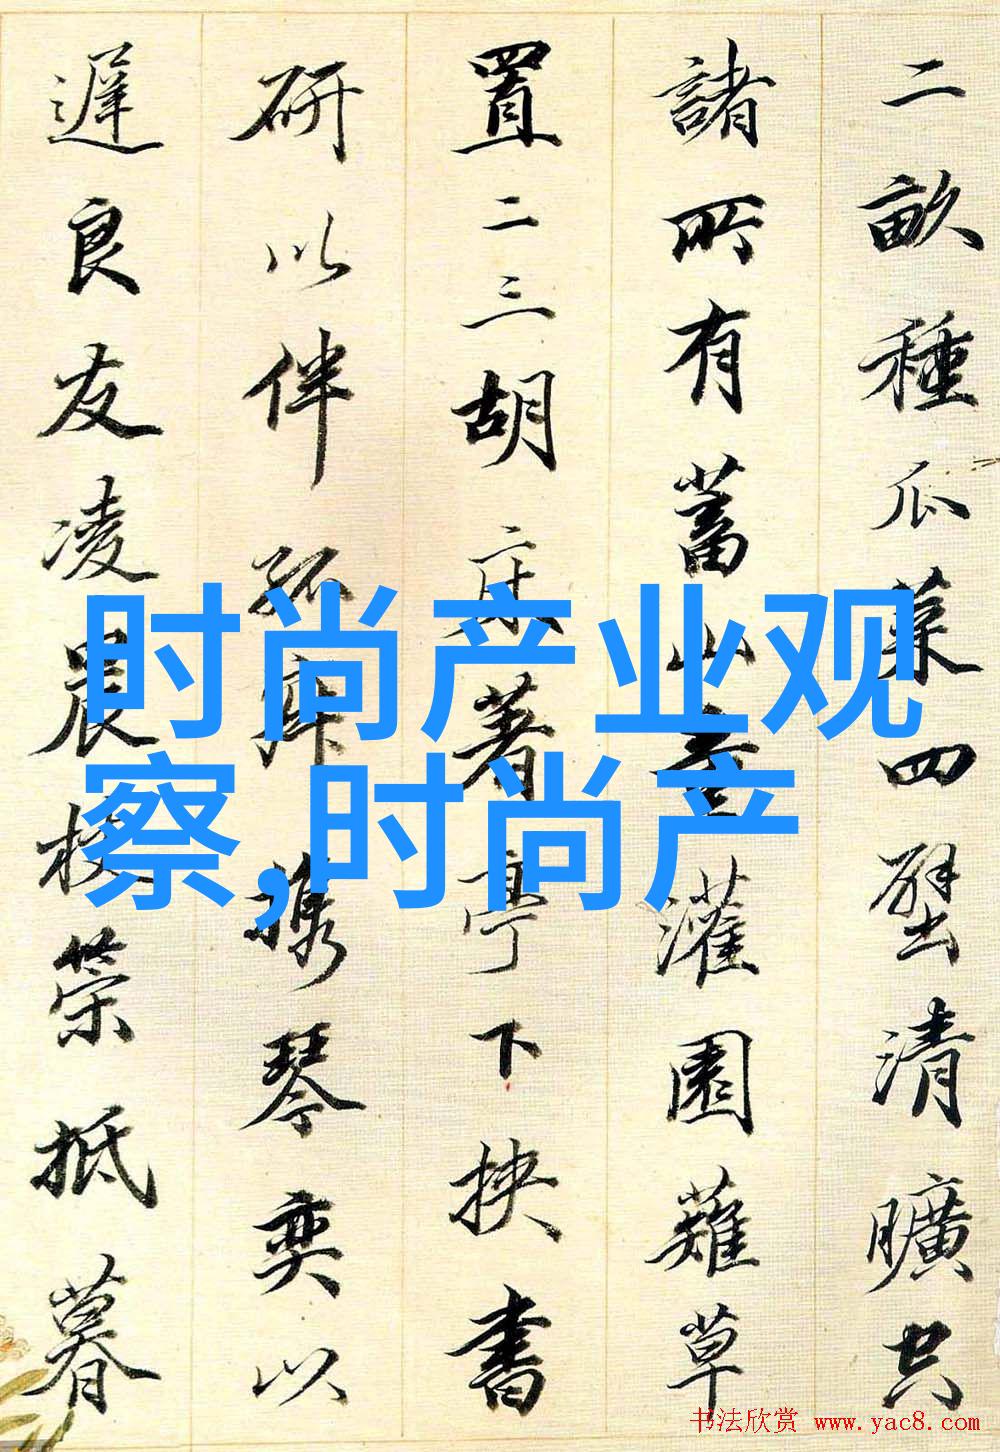 二畝種瓜菜四壁清曠共
諸所有蓄山童灌園薙草
置二三胡床著亭下挾書
研以伴孤寂攜琴奕以
遲良友凌晨杖策抵暮
时尚产业观
察,时尚产
书法欣赏 www.yac8.com